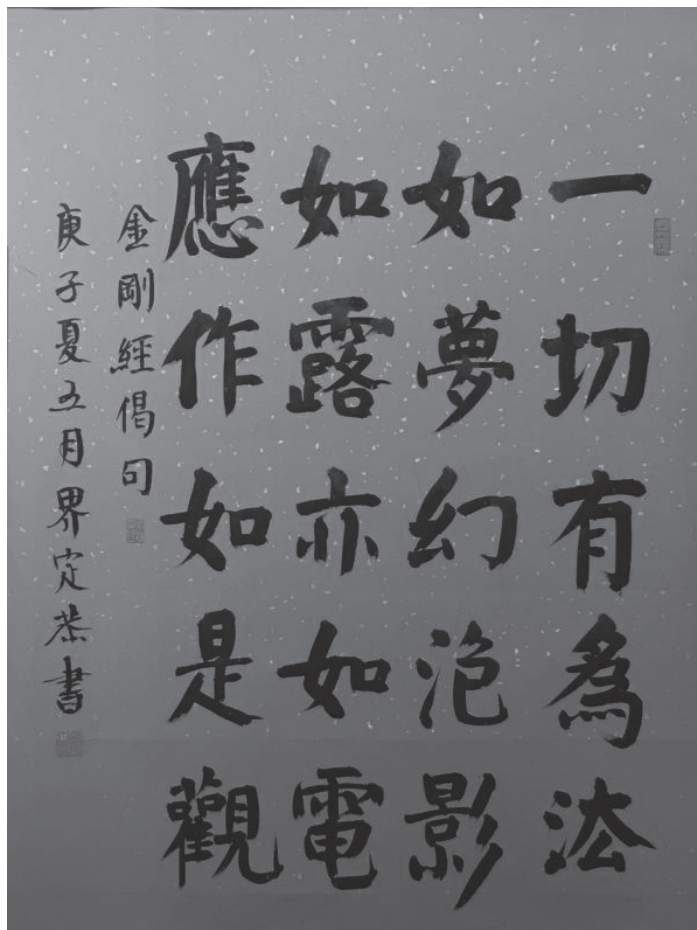 一切有為法
如夢幻泡影
如露亦如電
應作如是觀
金剛經偈句
庚子夏五月界定恭書